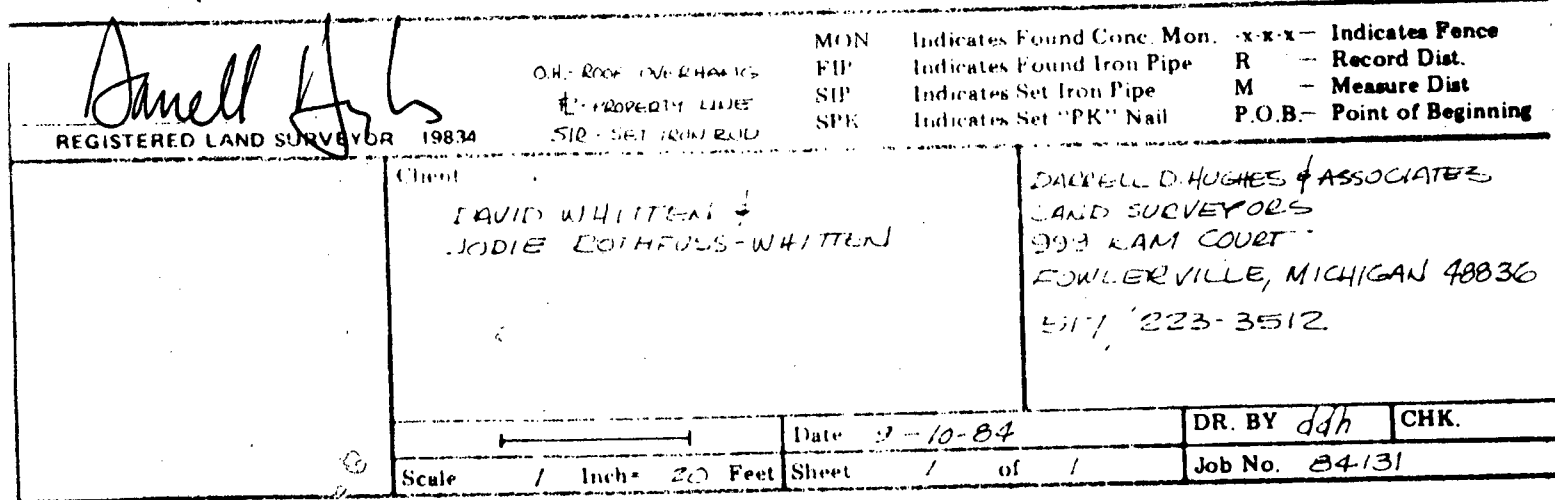 Darrell Hughes
REGISTERED LAND SURVEYOR 19834
O.H. - ROOF OVERHANG
PL - PROPERTY LINE
SIR - SET IRON ROD
MON Indicates Found Conc. Mon.
FIP Indicates Found Iron Pipe
SIP Indicates Set Iron Pipe
SPK Indicates Set "PK" Nail
-x-x-x- Indicates Fence
R - Record Dist.
M - Measure Dist
P.O.B.- Point of Beginning
Client
DAVID WHITTEN &
JODIE ROTHFUSS-WHITTEN
DARRELL D. HUGHES & ASSOCIATES
LAND SURVEYORS
999 RAM COURT
FOWLERVILLE, MICHIGAN 48836
517/ 223-3512
Date 9-10-84
DR. BY ddh CHK.
Scale 1 Inch= 20 Feet
Sheet 1 of 1
Job No. 84131